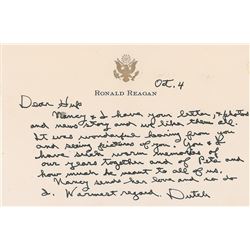 RONALD REAGAN
Oct. 4
Dear Hups
Nancy & I have your letter, & photos
and news story and we like them all.
It was wonderful hearing from you
and seeing pictures of you. You & I
have such warm memories of
our years together and of Pete and
how much he meant to all of us.
Nancy sends her love and so do
I. Warmest regard, Dutch